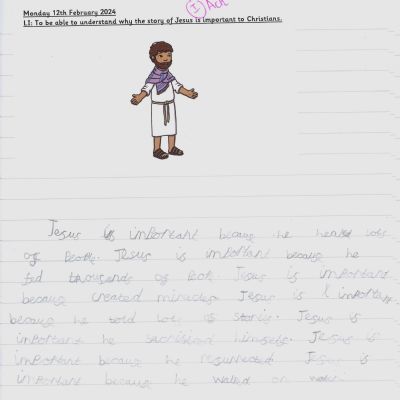 Monday 12th February 2024
I Act
L.I: To be able to understand why the story of Jesus is important to Christians.
Jesus is important becaue he heald lots
of People. Jesus is important because he
fed thousands of Peple Jesus is important
because created miracles Jesus is important
because he told lots of storis. Jesus is
important he sacrisised himself. Jesus is
important because he resurrected Jesus is
important because he walked on water